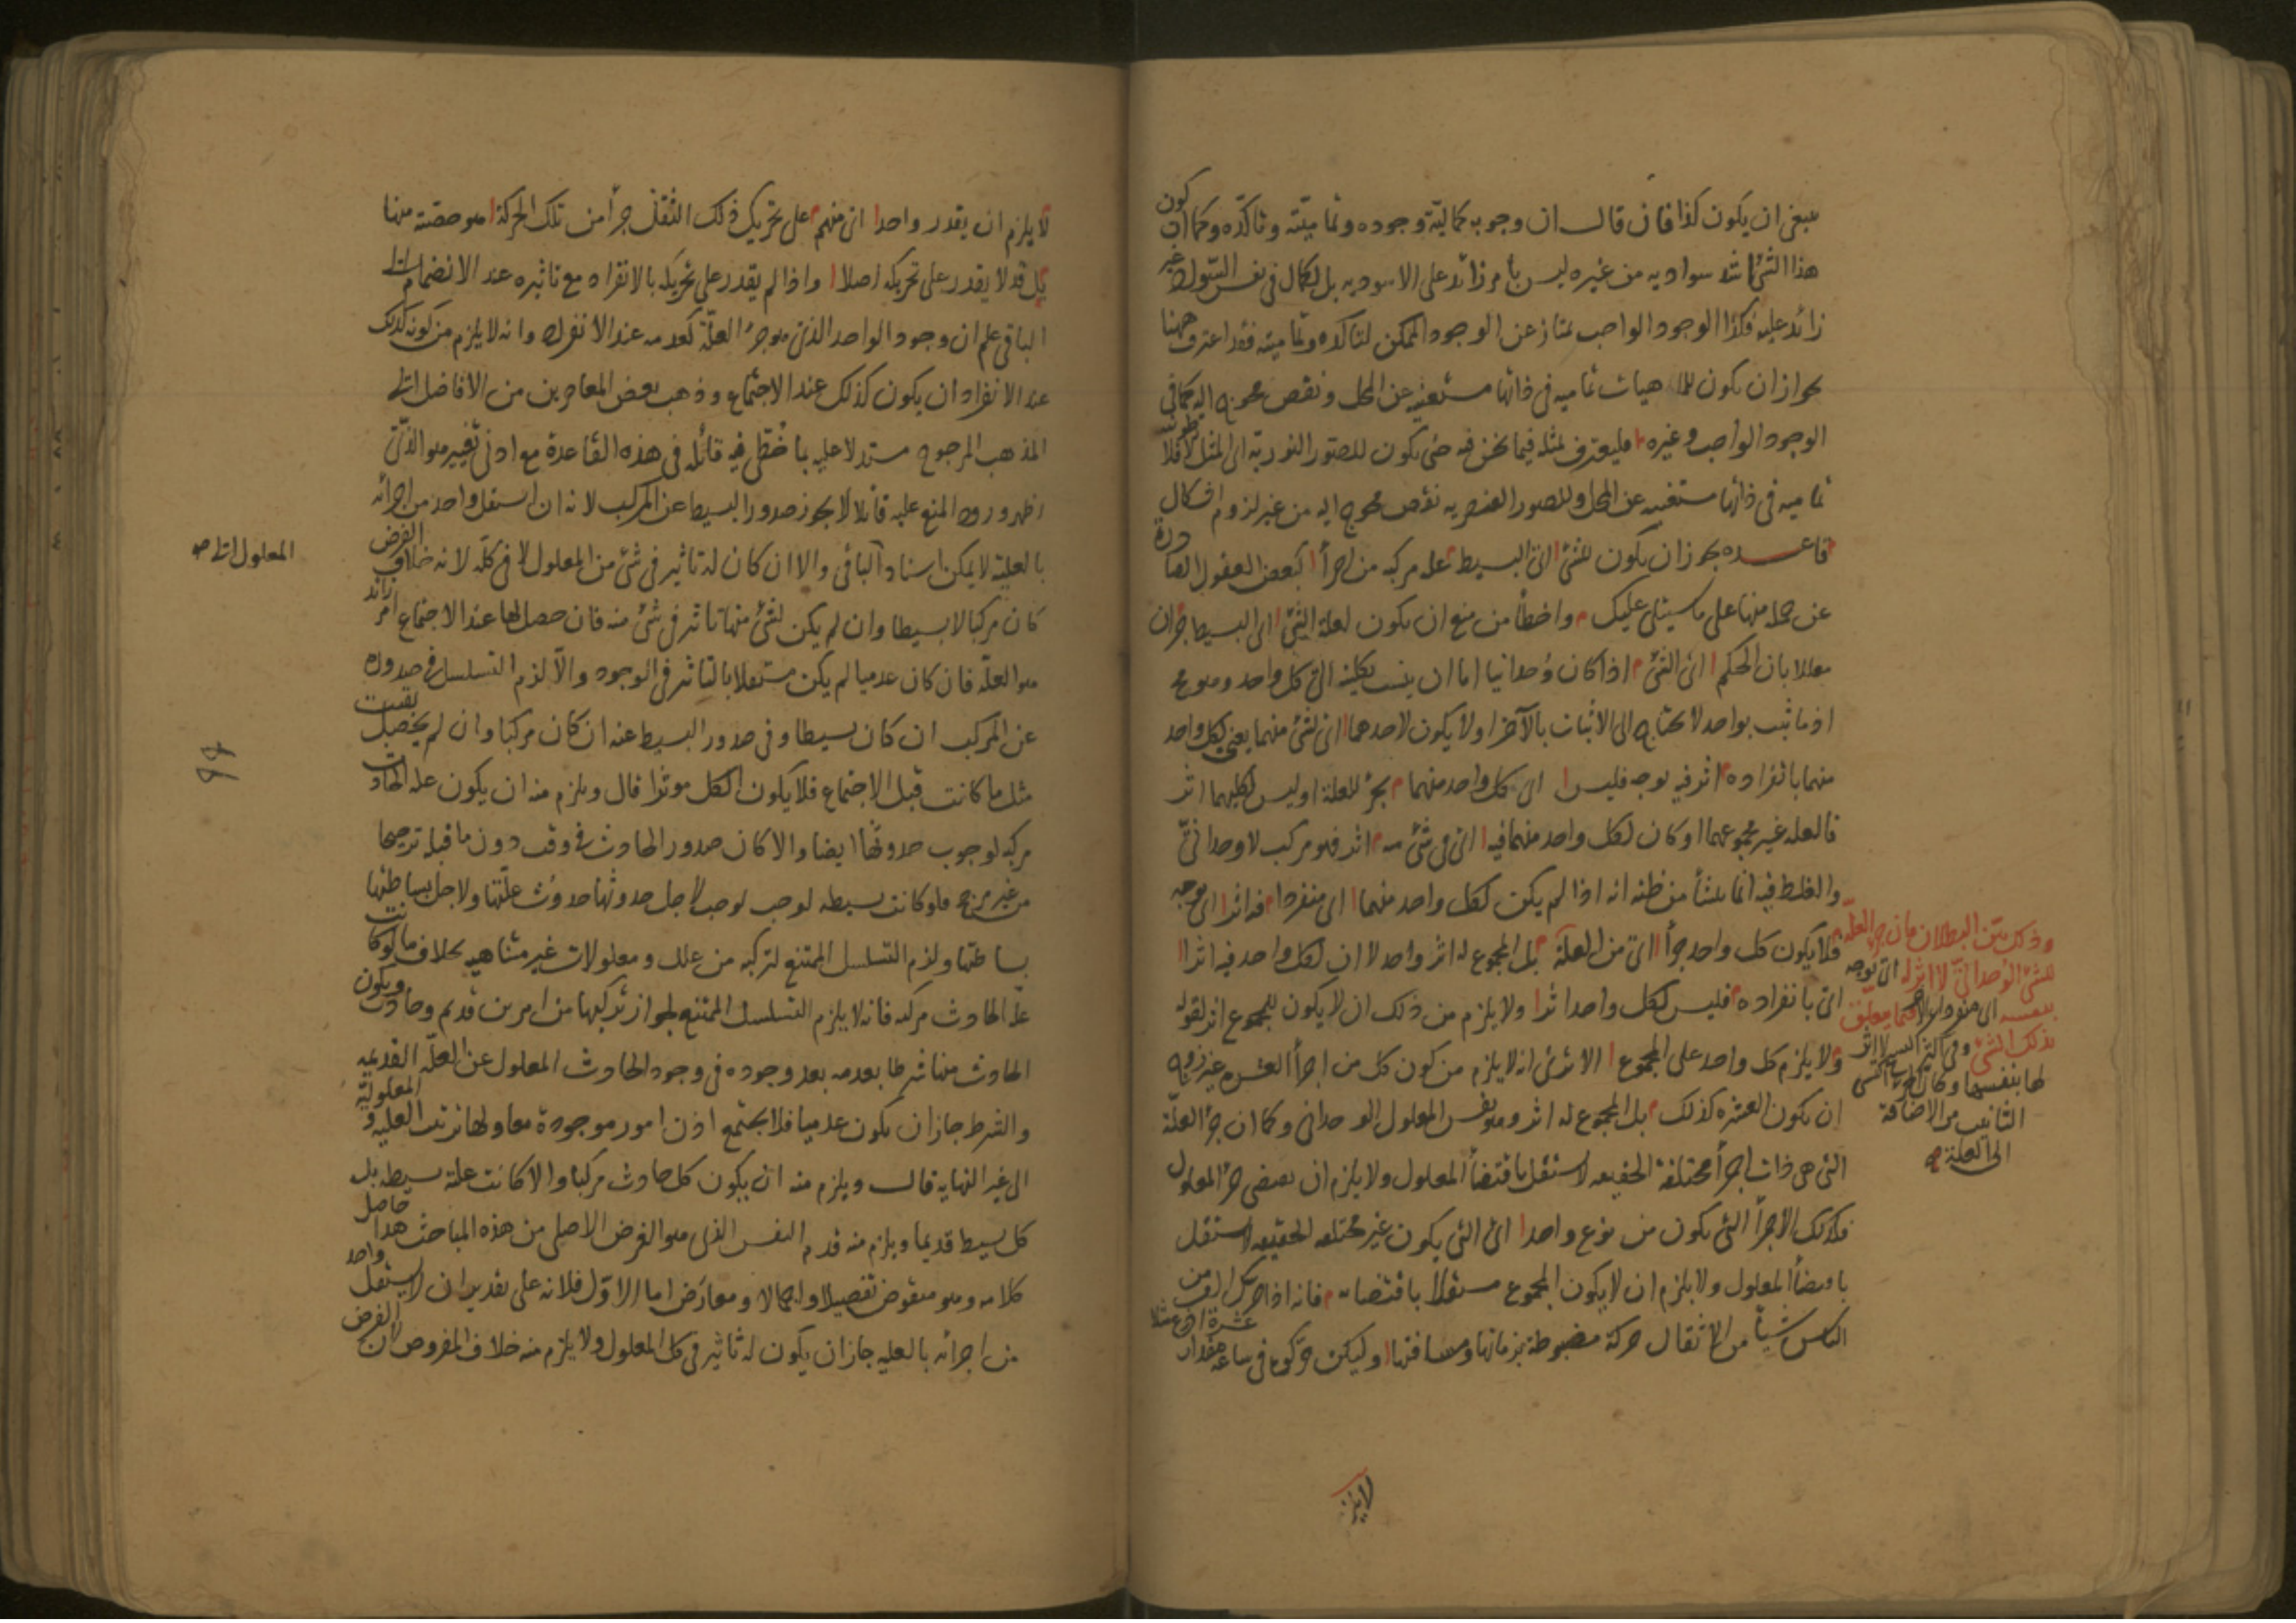 ينبغى ان يكون كذا فان قال ان وجوبه كمالية وجوده وتماميته وتأكده وكما ان كون
هذا الشئ اشد سوادية من غيره ليس بامر زائد على الاسودية بل لكمال فى نفس السواد غير
زائد عليه فكذا الوجود الواجب يمتاز عن الوجود الممكن لتاكده وتماميته فقد اعترف ههنا
بجواز ان يكون للماهيات تمامية فى ذاتها مستغنية عن المحل ونقص محوج اليه كما فى
الوجود الواجب وغيره فليعترف بمثله فيما نحن فيه حتى يكون للصور النورية
تمامية فى ذاتها مستغنية عن المحل وللصور العنصرية نقص محوج اليه من غير لزوم اشكال
قاعدة يجوز ان يكون للشئ اى البسيط علة مركبة من اجزأ كبعض العقول الصادرة
عن جملة منها على ما سيتلى عليك واخطأ من منع ان يكون لعلة الشئ اى البسيط جزان
معللا بان الحكم اى الشئ اذا كان وحدانيا اما ان ينسب بكليته الى كل واحد وهو مح
اذ ما ثبت بواحد لا يحتاج الى الاثبات بالآخر اولا يكون لاحدهما اى لشئ منهما يعنى لكل واحد
منهما بانفراده اثر فيه بوجه فليس اى كل واحد منهما بجزء للعلة او ليس لكليهما اثر
فالعلة غير مجموعهما او كان لكل واحد منهما فيه اى فى شئ منه اثر فهو مركب لا وحدانى
والغلط فيه انما ينشأ من ظنه انه اذا لم يكن لكل واحد منهما اى منفردا فيه اثر اى بوجه
فلا يكون كل واحد جزأ اى من العلة بل المجموع له اثر واحد لا ان لكل واحد فيه اثرا
اى بانفراده فليس لكل واحد اثر ولا يلزم من ذلك ان لا يكون للمجموع اثر لقوله
ولا يلزم كل واحد على المجموع الا ترى انه لا يلزم من كون كل من اجزأ العشرة غير زوج
ان يكون العشرة كذلك بل المجموع له اثر وهو نفس المعلول الوحدانى وكما ان جزء العلة
التى هى ذات اجزأ مختلفة الحقيقة لا يستقل باقتضأ المعلول ولا يلزم ان يقتضى جزء المعلول
فكذلك الاجزأ التى يكون من نوع واحد اى التى يكون غير مختلفة الحقيقة لا يستقل
باقتضأ المعلول ولا يلزم ان لا يكون المجموع مستقلا باقتضائه فانه اذا حرك الف من
الناس شيأ من الاثقال حركة مضبوطة بزمانها ومسافتها وليكن حركوه فى ساعة مقدار
عشرة اذرع مثلا
وذلك بين البطلان فان جزء العلة
للشئ الوحدانى لا اثر له اى بوجه
بنفسه اى منفردا
بذلك الشئ
لها بنفسها
التانيث من الاضافة
الى العلة
لا يلزم
لا يلزم ان يقدر واحد اى منهم على تحريك ذلك الثقل جزأ من تلك الحركة هو حصته منها
بل قد لا يقدر على تحريكه اصلا واذا لم يقدر على تحريكه بالانفراد مع تاثيره عند الانضمام الى
الباقى علم ان وجود الواحد الذى هو جزء العلة كعدمه عند الانفراد وانه لا يلزم من كونه كذلك
عند الانفراد ان يكون كذلك عند الاجتماع وذهب بعض المعاصرين من الافاضل الى
المذهب المرجوح مستدلا عليه بما خُطّئ فيه قائله فى هذه القاعدة مع ادنى تغيير هو الذى
اظهر ورود المنع عليه قائلا لا يجوز صدور البسيط عن المركب لانه ان استقل واحد من اجزائه
بالعلية لا يمكن اسناد الباقى والا ان كان له تاثير فى شئ من المعلول لا فى كله لانه خلاف الفرض
كان مركبا لا بسيطا وان لم يكن لشئ منها تاثير فى شئ منه فان حصل لها عند الاجتماع امر زائد
هو العلة فان كان عدميا لم يكن مستقلا بالتاثير فى الوجود والا لزم التسلسل فى صدوره
عن المركب ان كان بسيطا وفى صدور البسيط عنه ان كان مركبا وان لم يحصل بقيت
مثل ما كانت قبل الاجتماع فلا يكون الكل موثرا قال ويلزم منه ان يكون علة الحادث
مركبة لوجوب حدوثها ايضا والا كان صدور الحادث فى وقت دون ما قبله ترجيحا
من غير مرجح فلو كانت بسيطة لوجب لاجل حدوثها حدوث علتها ولاجل بساطتها
بساطتها ولزم التسلسل الممتنع لتركبه من علل ومعلولات غير متناهية بخلاف ما لو كانت
علة الحادث مركبة فانه لا يلزم التسلسل الممتنع لجواز تركبها من امرين قديم وحادث ويكون
الحادث منها شرطا بعدمه بعد وجوده فى وجود الحادث المعلول عن العلة القديمة
والشرط جاز ان يكون عدميا فلا يجتمع اذن امور موجودة معا ولها ترتب العلية والمعلولية
الى غير النهاية قال ويلزم منه ان يكون كل حادث مركبا والا كانت علته بسيطة بل
كل بسيط قديما ويلزم منه قدم النفس الذى هو الغرض الاصلى من هذه المباحث هذا حاصل
كلامه وهو منقوض تفصيلا واجمالا ومعارض اما الاول فلانه على تقدير ان لا يستقل واحد
من اجزائه بالعلية جاز ان يكون له تاثير فى كل المعلول ولا يلزم منه خلاف المفروض لان الفرض
المعلول